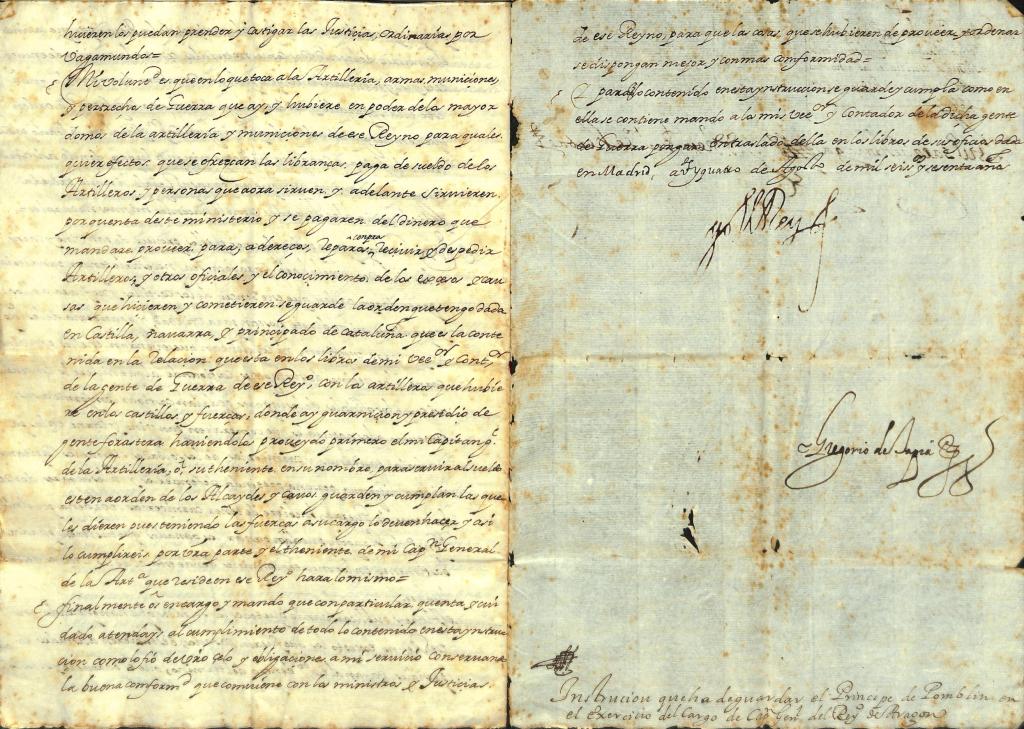 hicieren los puedan prender y castigar las Justicias, ordinarias por
Vagamundos=
Mi Volunᵈ es, que en lo que toca a la Artilleria, armas, municiones,
y pertrechos de Guerra que ay, y hubiere en poder de los mayor
domos de la artilleria y municiones de ese Reyno para quales
quier efectos que se ofrezcan las libranças, paga de sueldo de los
Artilleros, y personas que aora sirven, y adelante sirvieren
por quenta deste ministerio, y se pagaren del dinero que
mandare proveer para, adereços, Reparos, compra, Recivir y despedir
Artilleros, y otros oficiales, y el conocimiento de los excesos y cau
sas que hicieren y cometieren se guarde la orden que tengo dada
en Castilla, navarra, y principado de cataluña que es la conte
nida en la Relacion que esta en los libros de mi Veeᵒʳ y Contᵒʳ
de la gente de Guerra de ese Reyº, con la artilleria que hubie
re en los castillos y fuerças, donde ay guarnicion y presidio de
gente forastera haviendola proveydo primero el mi Capitan gˡ
de la Artilleria, ó su theniente en su nombre, para servir al sueldo
esten a orden de los Alcaydes y cavos guarden y cumplan las que
les dieren pues teniendo las fuerças a su cargo lo deven hacer y asi
lo cumplireis por vrā parte y el theniente de mi Capⁿ General
de la Artᵃ que reside en ese Reyº hara lo mismo=
finalmente os encargo y mando que con particular quenta y cui
dado atendays al cumplimiento de todo lo contenido en esta ynstru
cion como lo fio de vrō çelo y obligaciones a mi servicio conservando
la buena conformᵈ que combiene con los ministros y Justicias.
de ese Reyno, para que las cosas, que se hubieren de proveer y ordenar
se dispongan mejor, y con mas conformidad=
para lo contenido en esta ynstrucion se guarde y cumpla como en
ella se contiene mando a los mis veeᵒʳ y Contador de la dicha gente
de Guerra pongan en traslado della en los libros de sus oficios dada
en Madrid, a Vᵗᵉ y quatro de Agosto de mil seisᵒˢ y sesenta años
yo el Rey
Gregorio de Tapia
Instrucion que ha de guardar el Principe de Pomblin en
el Exercicio del Cargo de Capⁿ Genˡ del Reyº de Aragon